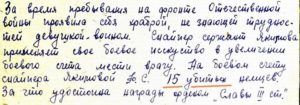 За время пребывания на фронте Отечественной
войны проявила себя храброй, не знающей труднос-
тей девушкой-воином. Снайпер сержант Якимова
применяет свое боевое искусство в увеличении
боевого счета мести врагу. На боевом счету
снайпера Якимовой К.С. 15 убитых немцев.
За что удостоена награды орденом "Славы III ст."